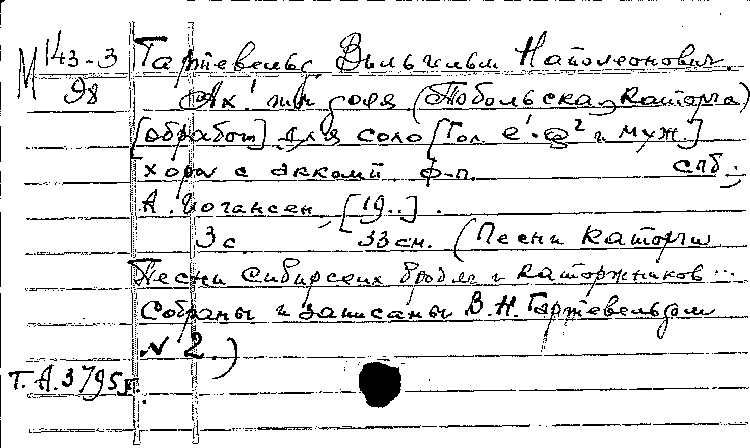 М 143-3
98
Гартевельд, Вильгельм Наполеонович.
Ах! ты доля (Тобольская каторга)
[обработ] для соло [Гол e¹-g² и муж.]
хора с акком. ф-п. СПб.;
А. Иогансен, [19..].
3 с. 33 см. (Песни каторги
Песни сибирских бродяг и каторжников...
Собраны и записаны В. Н. Гартевельдом
N 2.)
Т. А. 3795